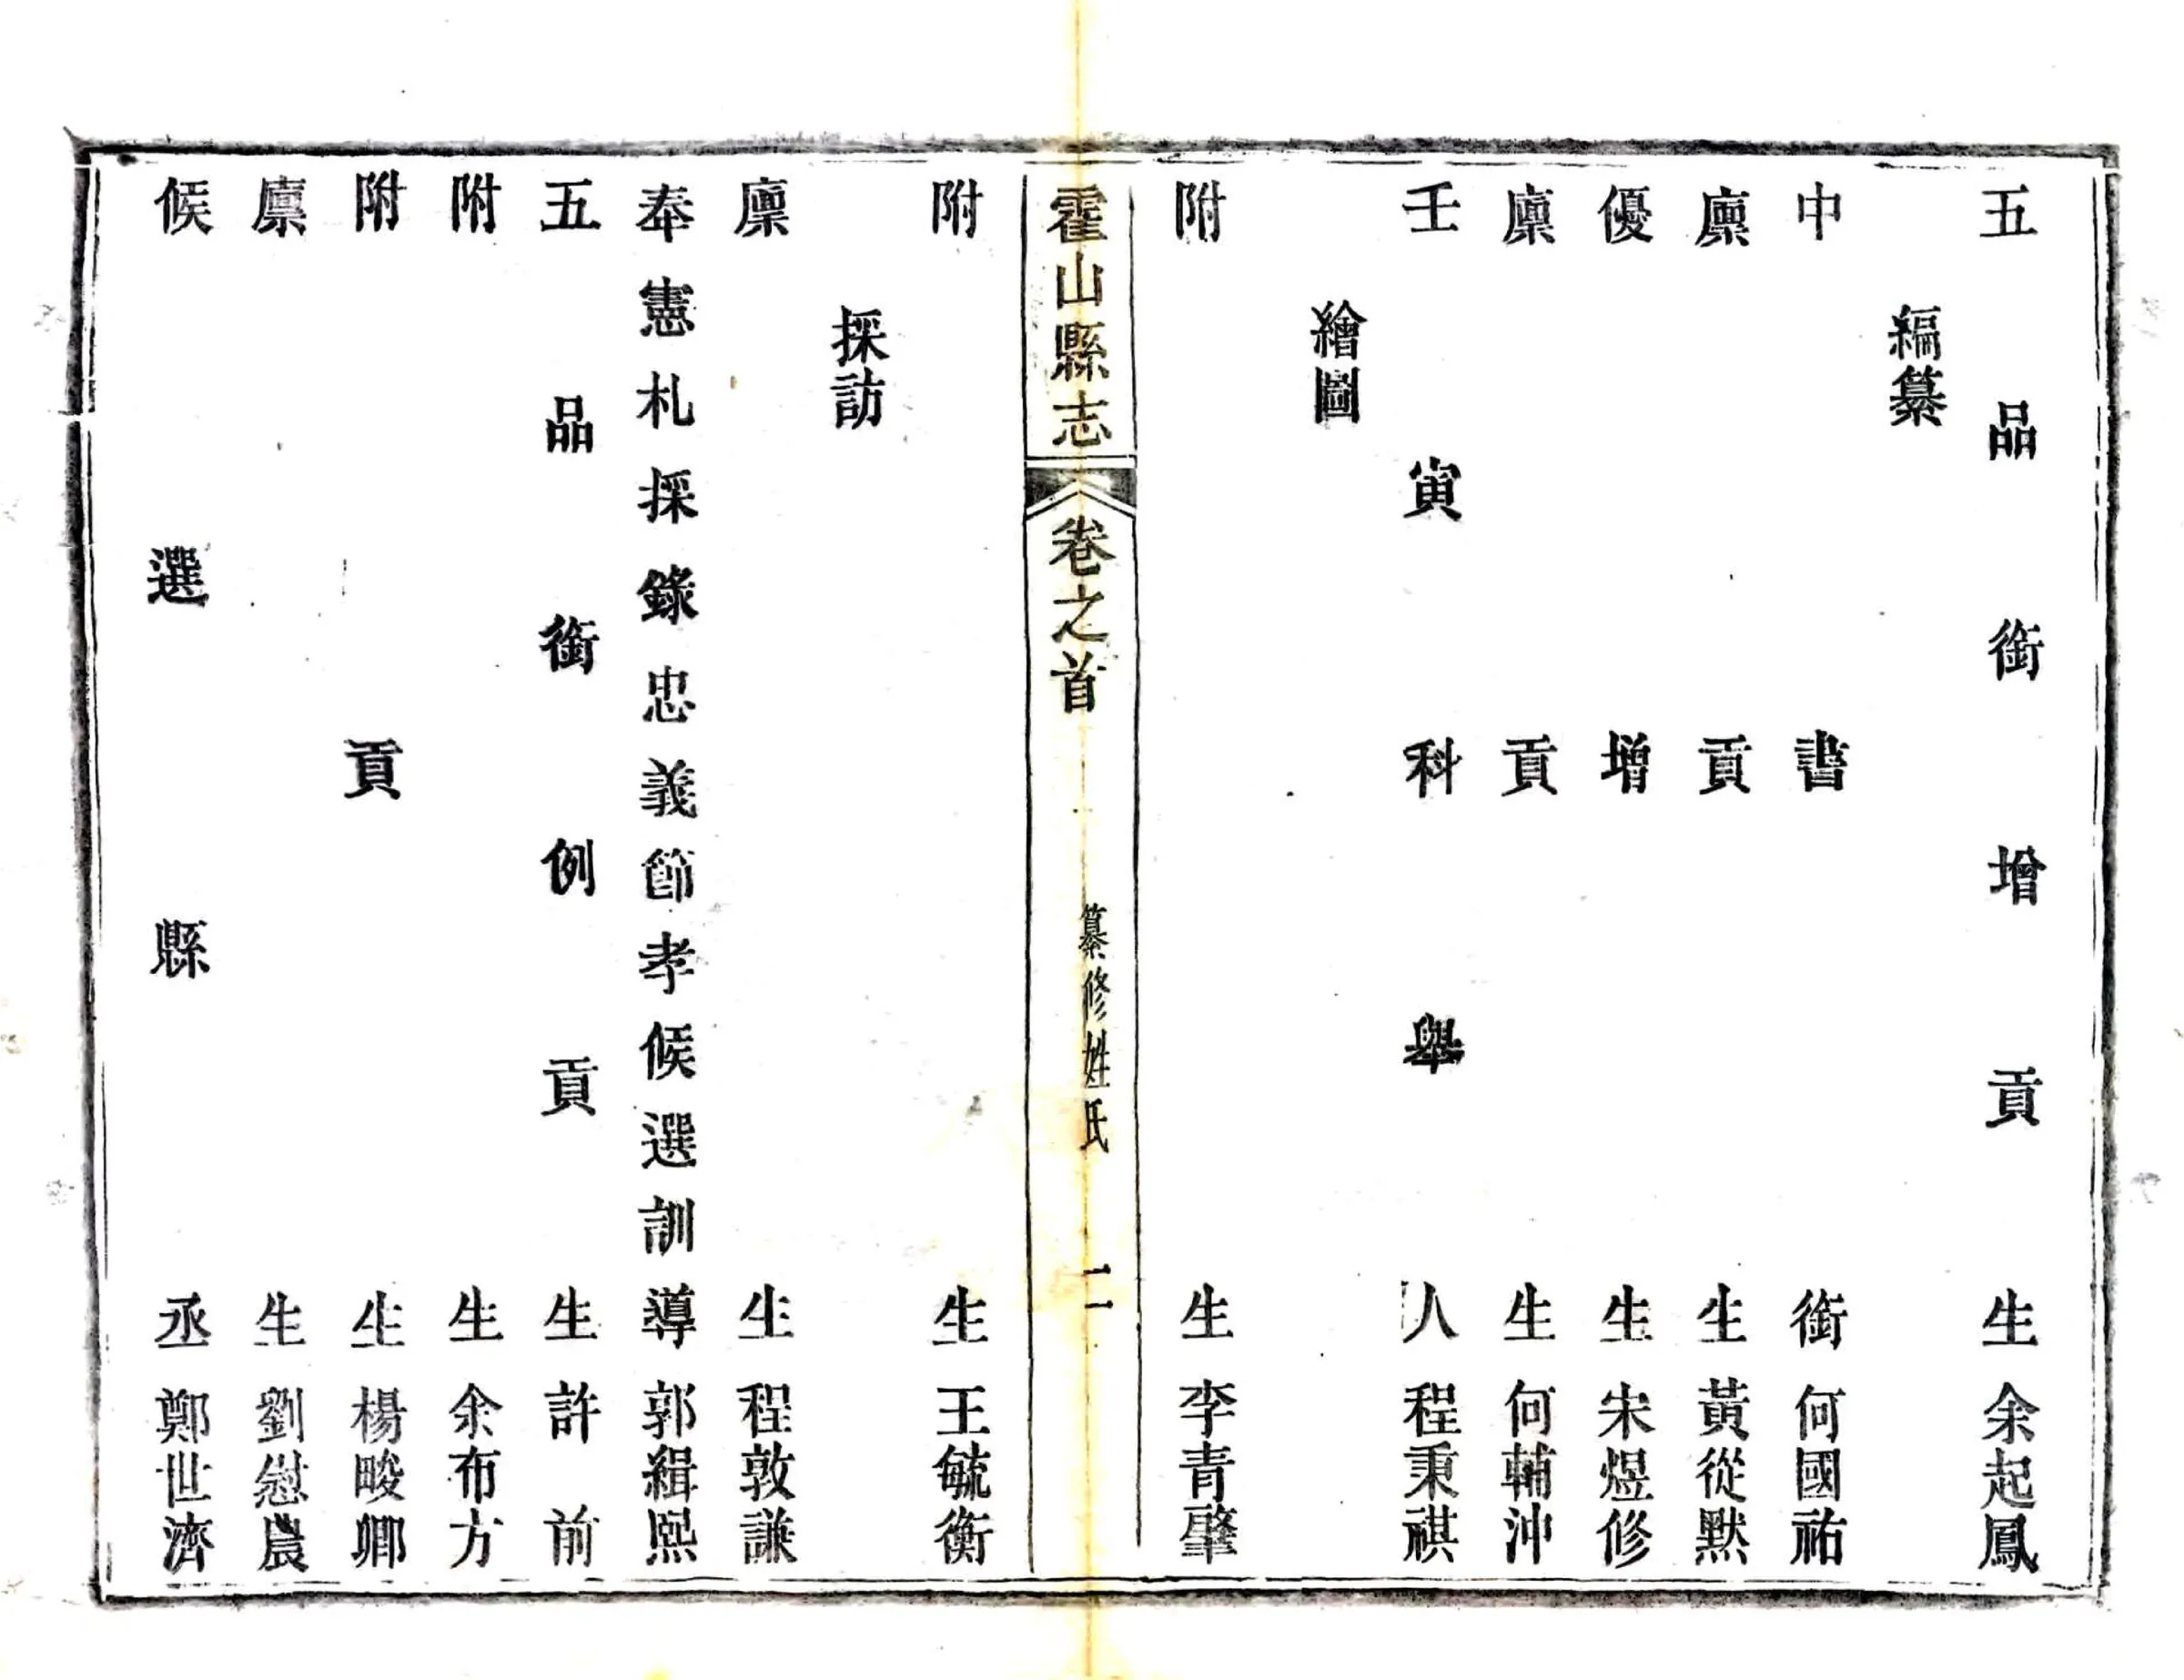 五品銜增貢生余起鳳
編纂
中書銜何國祐
廩貢生黃從默
優增生朱煜修
廩貢生何輔沖
壬寅科舉人程秉祺
繪圖
附生李青肇
霍山縣志 卷之首 纂修姓氏 二
附生王毓衡
採訪
廩生程敦謙
奉憲札採錄忠義節孝候選訓導郭緝熙
五品銜例貢生許前
附生余布方
附貢生楊畯卿
廩生劉慰農
候選縣丞鄭世濟